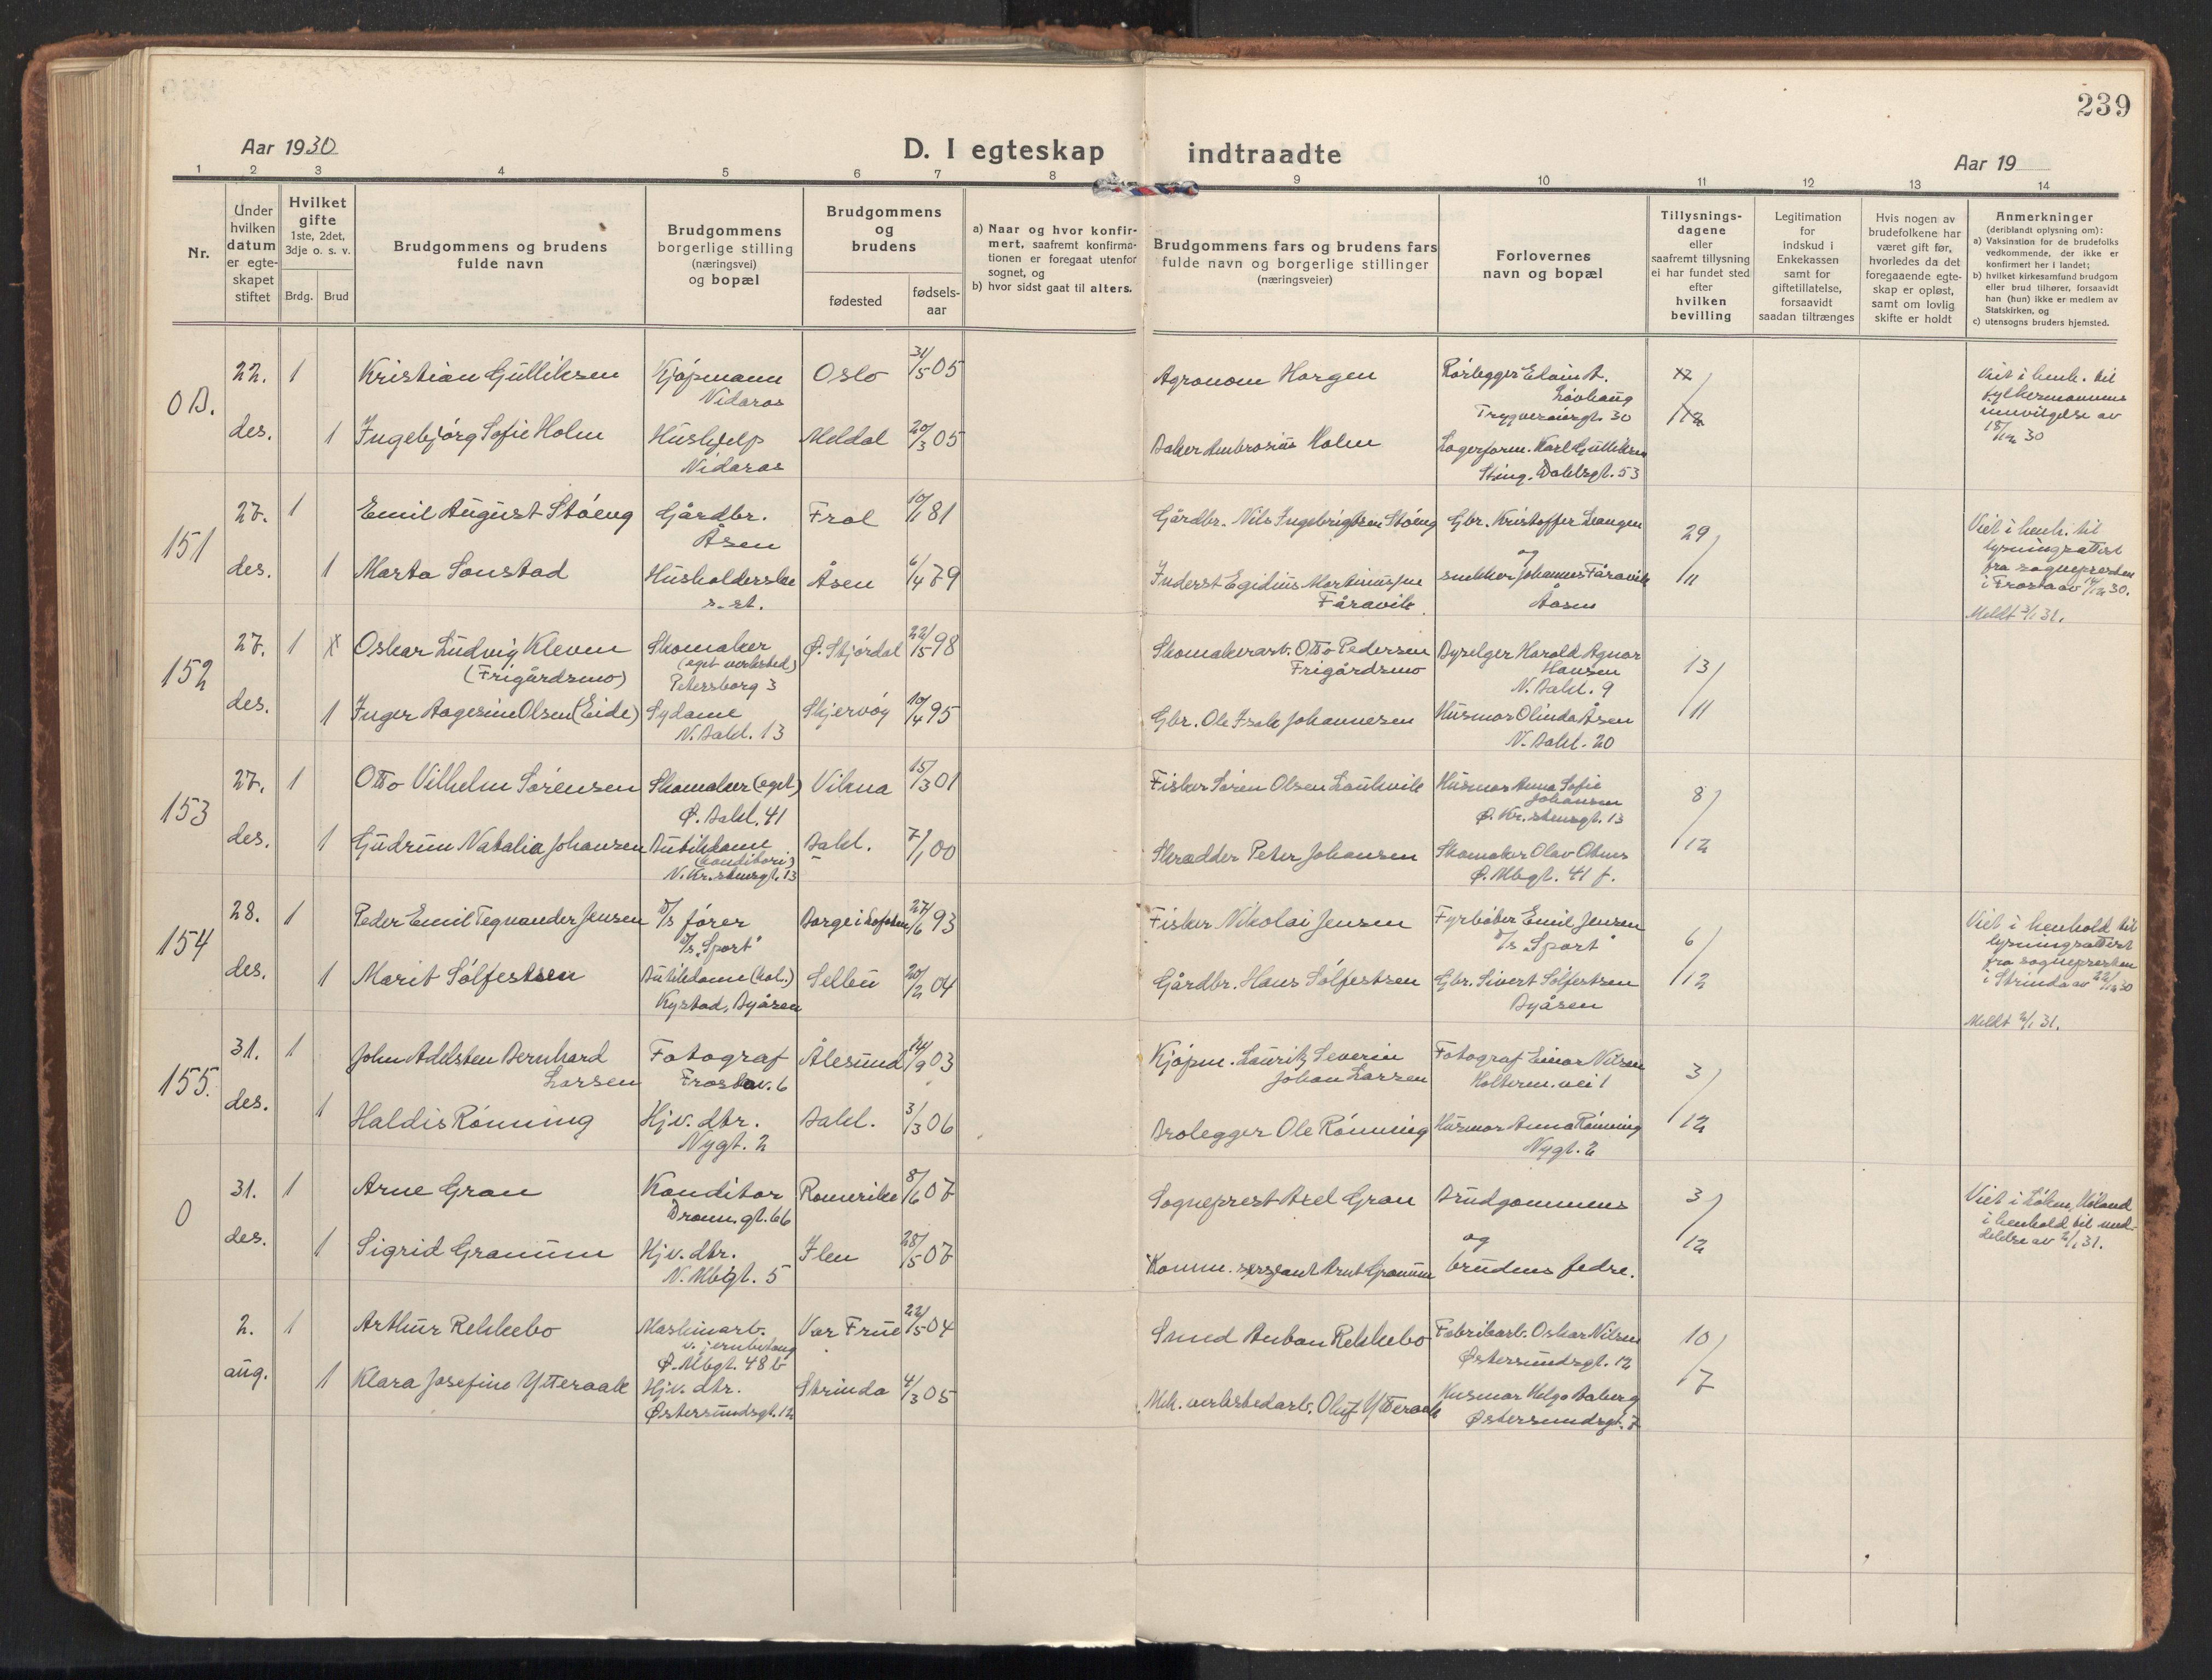 239
Aar 1930
D. I egteskap indtraadte
Aar 19
1 2 3 4 5 6 7 8 9 10 11 12 13 14
Nr.
Under hvilken datum er egte-skapet stiftet
Hvilket gifte
1ste, 2det, 3dje o. s. v.
Brdg. Brud
Brudgommens og brudens
fulde navn
Brudgommens
borgerlige stilling
(næringsvei)
og bopæl
Brudgommens
og
brudens
fødested
fødsels-
aar
a) Naar og hvor konfir-
mert, saafremt konfirma-
tionen er foregaat utenfor
sognet, og
b) hvor sidst gaat til alters.
Brudgommens fars og brudens fars
fulde navn og borgerlige stillinger
(næringsveier)
Forlovernes
navn og bopæl
Tillysnings-
dagene
eller
saafremt tillysning
ei har fundet sted
efter
hvilken
bevilling
Legitimation
for
indskud i
Enkekassen
samt for
giftetillatelse,
forsaavidt
saadan tiltrænges
Hvis nogen av
brudefolkene har
været gift før,
hvorledes da det
foregaaende egte-
skap er opløst,
samt om lovlig
skifte er holdt
Anmerkninger
(deriblandt oplysning om):
a) Vaksination for de brudefolks
vedkommende, der ikke er
konfirmert her i landet;
b) hvilket kirkesamfund brudgom
eller brud tilhører, forsaavidt
han (hun) ikke er medlem av
Statskirken, og
c) utensogns bruders hjemsted.
22. 1 Kristian Gulliksen Kjøpmann Oslo 31/5 05 Agronom Horgen Rørlegger A.
Nidaros Løvhaug
Trygvesonsgt. 30
0 B.
des. 1 Ingebjørg Sofie Holm Hushjelp Meldal 20/3 05 Baker Ambrosius Holm Lagerform. Karl Gulliksen
Nidaros Dahlsgt. 53
Viet i henh. til
fylkesmannens
av
18/12 30
27. 1 Emil August Støeng Gårdbr. Frol 10/1 81 Gårdbr. Nils Ingebrigtsen Støeng Gbr. Kristoffer Leangen 29/
Åsen og
151
des. 1 Marta Sonstad Husholderske Åsen 6/4 79 Inderst Egidius Martinussen snekker Johannes Fåravik 11
s. st. Fåravik Åsen
Viet i henh. til
lysningsattest
fra sognepresten
i Frosta av 14/12 30.
Meldt 2/1 31.
27. 1 x Oskar Ludvig Kleven Skomaker Ø. Stjørdal 22/5 98 Skomakerarb. Otto Pedersen Byselger Harald Agnar 13/
(Frigårdsmo) (eget verksted) Frigårdsmo Hansen
Petersborg 3 N. Bakl. 9
152
des. 1 Inger Aagesine Olsen (Eide) Sydame Skjervøy 10/4 95 Gbr. Ole Isak Johannesen Husmor Olinda Åsen 11
N. Bakl. 13 N. Bakl. 20
27. 1 Otto Vilhelm Sørensen Skomaker (eget) Vikna 15/3 01 Fisker Søren Olsen Laukvik Husmor Anna Sofie 8/
Ø. Bakl. 41 Johansen
Ø. Kr. stensgt. 13
153
des. 1 Gudrun Natalia Johansen Butikkdame Bakl. 7/1 00 Skrædder Peter Johansen Skomaker Olav 12
(konditori) Ø. Mbgt. 41 f.
N. Kr. stensgt. 13
28. 1 Peder Emil Tegnander Jensen D/s fører Borge i Lofoten 27/6 93 Fisker Nikolai Jensen Fyrbøter Emil Jensen 6/
D/s „Sport" D/s „Sport"
154
des. 1 Marit Sølfestsen Butikkdame (kol.) Selbu 20/2 04 Gårdbr. Hans Sølfestsen Gbr. Sivert Sølfestsen 12
Kystad, Byåsen Byåsen
Viet i henhold til
lysningsattest
fra sognepresten
i Strinda av 22/12 30
Meldt 2/1 31.
31. 1 John Adelsten Bernhard Fotograf Ålesund 14/9 03 Kjøpm. Lauritz Severin Fotograf Einar Nilsen 3/
Larsen Frostav. 6 Johan Larsen Holterm. vei 1
155.
des. 1 Haldis Rønning Hjv. dtr. Bakl. 3/3 06 Brolegger Ole Rønning Husmor Anna Rønning 12
Nygt. 2 Nygt. 2
31. 1 Arne Gran Konditor Romerike 8/6 07 Sogneprest Axel Gran Brudgommens 3/
Dronn. gt. 66 og
0
des. 1 Sigrid Granum Hjv. dtr. Ilen 28/5 07 Komm. sersjant Granum brudens fedre. 12
N. Mbgt. 5
Viet i Løken, Høland
i henhold til med-
delelse av 2/1 31.
2. 1 Arthur Rekkebo Maskinarb. Vor Frue 22/5 04 Smed Anton Rekkebo Fabrikarb. Oskar Nilsen 10/
v. jernbetong Østersundsgt. 12
Ø. Mbgt. 48 b
aug. 1 Klara Josefine Ytteraak Hjv. dtr. Strinda 4/3 05 Mek. verkstedarb. Oluf Ytteraak Husmor Helga Aaberg 7
Østersundsgt. 12 Østersundsgt. 7